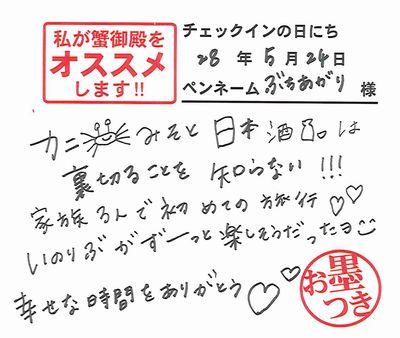 私が蟹御殿を
オススメ
します!!
チェックインの日にち
28年5月24日
ペンネーム ぶちあがり 様
カニみそと日本酒は
裏切ることを知らない!!!
家族5人で初めての旅行♡♡
いのりぶがずーっと楽しそうだったヨ
幸せな時間をありがとう♡♡
お墨つき